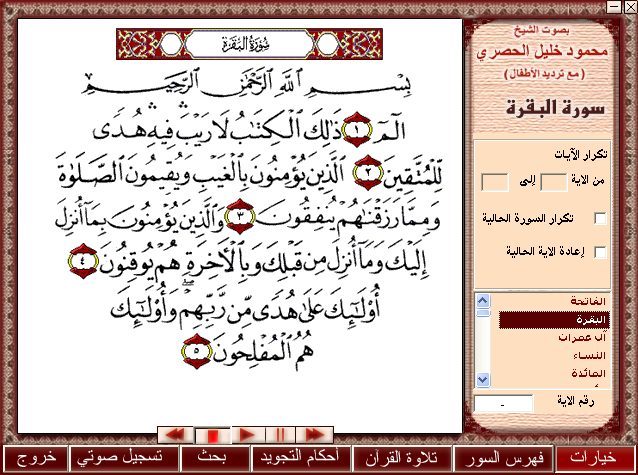 سورة البقرة
بسم الله الرحمن الرحيم
الٓمٓ ١ ذَٰلِكَ ٱلْكِتَٰبُ لَا رَيْبَ ۛ فِيهِ ۛ هُدًى
لِّلْمُتَّقِينَ ٢ ٱلَّذِينَ يُؤْمِنُونَ بِٱلْغَيْبِ وَيُقِيمُونَ ٱلصَّلَوٰةَ
وَمِمَّا رَزَقْنَٰهُمْ يُنفِقُونَ ٣ وَٱلَّذِينَ يُؤْمِنُونَ بِمَآ أُنزِلَ
إِلَيْكَ وَمَآ أُنزِلَ مِن قَبْلِكَ وَبِٱلْأَخِرَةِ هُمْ يُوقِنُونَ ٤
أُوْلَٰٓئِكَ عَلَىٰ هُدًى مِّن رَّبِّهِمْ ۖ وَأُوْلَٰٓئِكَ
هُمُ ٱلْمُفْلِحُونَ ٥
بصوت الشيخ
محمود خليل الحصري
(مع ترديد الأطفال)
سورة البقرة
تكرار الآيات
من الاية إلى
تكرار السورة الحالية
إعادة الاية الحالية
الفاتحة
البقرة
آل عمران
النساء
المائدة
رقم الاية -
خيارات
فهرس السور
تلاوة القرآن
أحكام التجويد
بحث
تسجيل صوتي
خروج